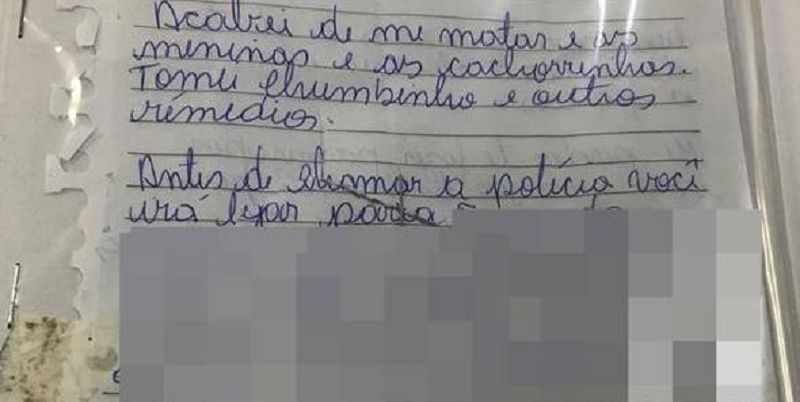 Acabei de me matar e as
meninas e as cachorrinhas.
Tomei chumbinho e outros
remédios.
Antes de chamar a polícia você
irá